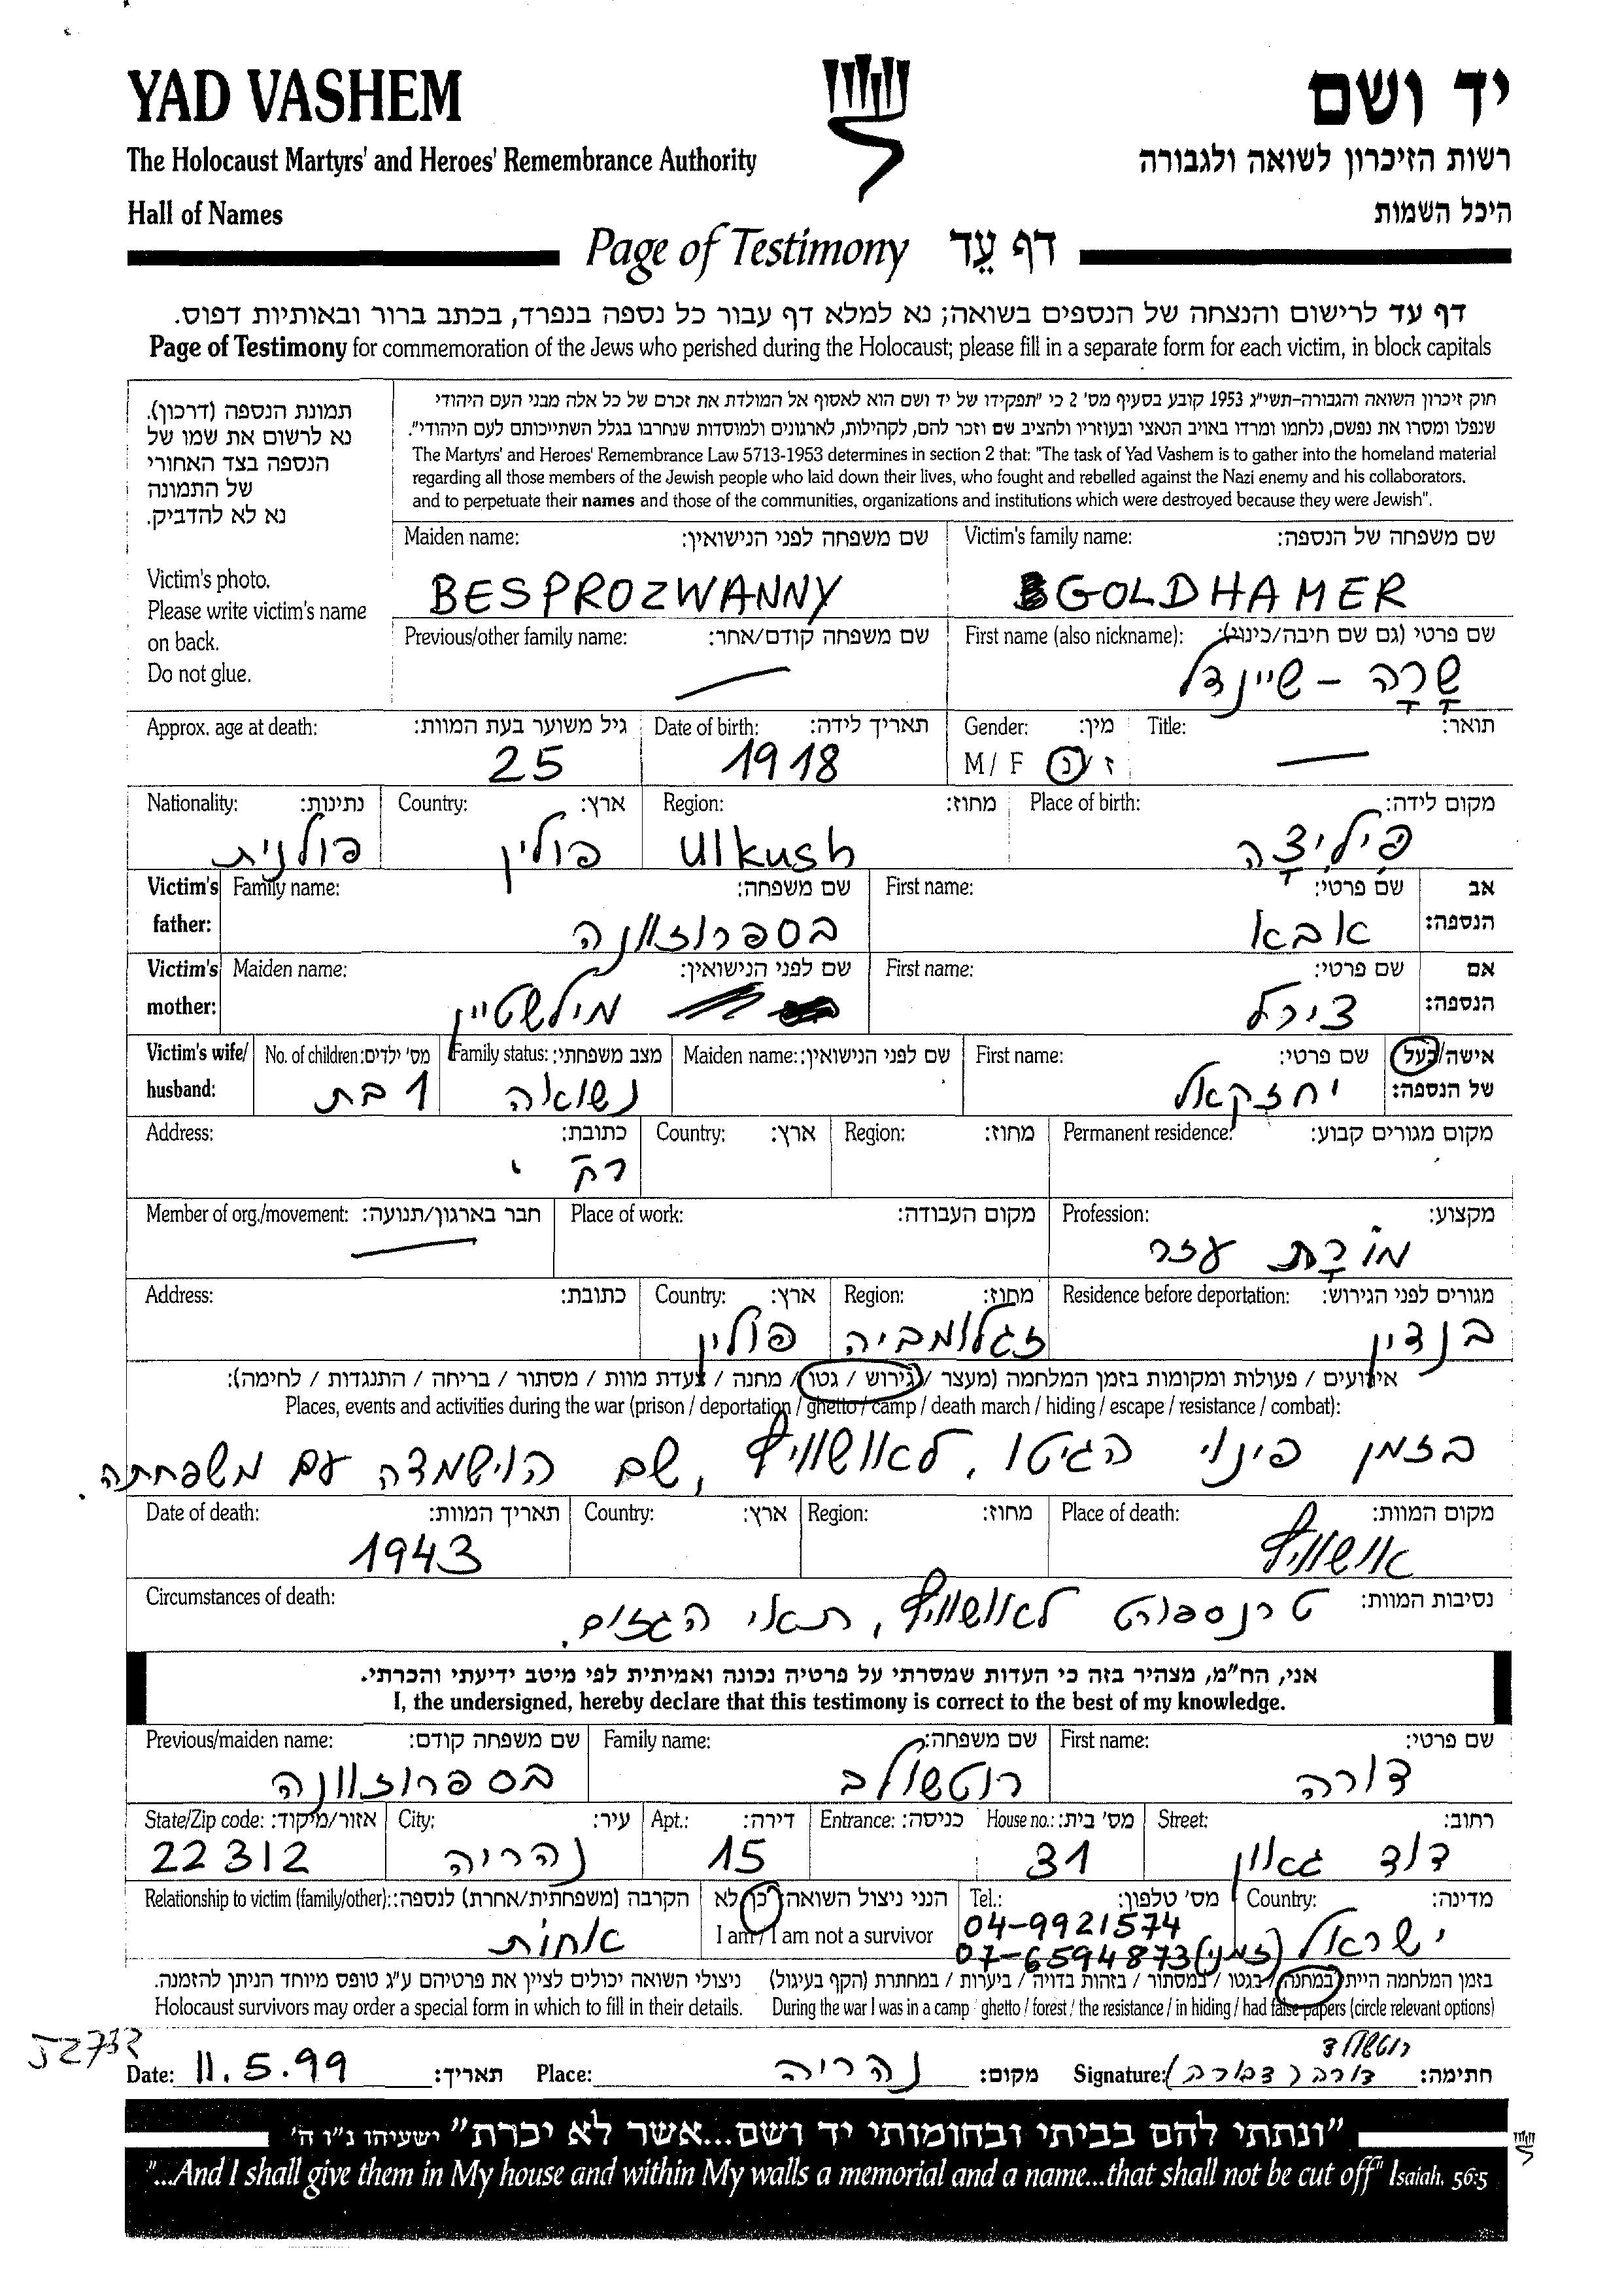 YAD VASHEM
יד ושם
The Holocaust Martyrs' and Heroes' Remembrance Authority
רשות הזיכרון לשואה ולגבורה
Hall of Names
היכל השמות
Page of Testimony דף עֵד
דף עד לרישום והנצחה של הנספים בשואה; נא למלא דף עבור כל נספה בנפרד, בכתב ברור ובאותיות דפוס.
Page of Testimony for commemoration of the Jews who perished during the Holocaust; please fill in a separate form for each victim, in block capitals
תמונת הנספה (דרכון).
נא לרשום את שמו של
הנספה בצד האחורי
של התמונה
נא לא להדביק.
Victim's photo.
Please write victim's name
on back.
Do not glue.
חוק זיכרון השואה והגבורה-תשי"ג 1953 קובע בסעיף מס' 2 כי "תפקידו של יד ושם הוא לאסוף אל המולדת את זכרם של כל אלה מבני העם היהודי
שנפלו ומסרו את נפשם, נלחמו ומרדו באויב הנאצי ובעוזריו ולהציב שם וזכר להם, לקהילות, לארגונים ולמוסדות שנחרבו בגלל השתייכותם לעם היהודי".
The Martyrs' and Heroes' Remembrance Law 5713-1953 determines in section 2 that: "The task of Yad Vashem is to gather into the homeland material
regarding all those members of the Jewish people who laid down their lives, who fought and rebelled against the Nazi enemy and his collaborators,
and to perpetuate their names and those of the communities, organizations and institutions which were destroyed because they were Jewish".
Maiden name: שם משפחה לפני הנישואין: Victim's family name: שם משפחה של הנספה:
BESPROZWANNY GOLDHAMER
Previous/other family name: שם משפחה קודם/אחר: First name (also nickname): שם פרטי (גם שם חיבה/כינוי):
שָרָה - שיינדל
Approx. age at death: גיל משוער בעת המוות: Date of birth: תאריך לידה: Gender: מין: Title: תואר:
25 1918 M / F ז / נ
Nationality: נתינות: Country: ארץ: Region: מחוז: Place of birth: מקום לידה:
פולנית פולין Ulkush פִילִיצָה
Victim's father: Family name: שם משפחה: First name: שם פרטי: אב הנספה:
בספרוזוונה אבא
Victim's mother: Maiden name: שם לפני הנישואין: First name: שם פרטי: אם הנספה:
מילשטיין צירל
Victim's wife/ husband: No. of children: מס' ילדים: Family status: מצב משפחתי: Maiden name: שם לפני הנישואין: First name: שם פרטי: אישה/בעל של הנספה:
1 בת נשואה יחזקאל
Address: כתובת: Country: ארץ: Region: מחוז: Permanent residence: מקום מגורים קבוע:
Member of org./movement: חבר בארגון/תנועה: Place of work: מקום העבודה: Profession: מקצוע:
עזר
Address: כתובת: Country: ארץ: Region: מחוז: Residence before deportation: מגורים לפני הגירוש:
פולין זגלומביה בנדין
אירועים / פעולות ומקומות בזמן המלחמה (מעצר / גירוש / גטו / מחנה / צעדת מוות / מסתור / בריחה / התנגדות / לחימה):
Places, events and activities during the war (prison / deportation / ghetto / camp / death march / hiding / escape / resistance / combat):
בזמן פינוי הגיטו, לאושוויץ, שם הוישמדה עם משפחתה.
Date of death: תאריך המוות: Country: ארץ: Region: מחוז: Place of death: מקום המוות:
1943 אושוויץ
Circumstances of death: נסיבות המוות:
טרנספורט לאושוויץ, תאי הגזים.
אני, הח"מ, מצהיר בזה כי העדות שמסרתי על פרטיה נכונה ואמיתית לפי מיטב ידיעתי והכרתי.
I, the undersigned, hereby declare that this testimony is correct to the best of my knowledge.
Previous/maiden name: שם משפחה קודם: Family name: שם משפחה: First name: שם פרטי:
בספרוזוונה רוטשולב דורה
State/Zip code: אזור/מיקוד: City: עיר: Apt.: דירה: Entrance: כניסה: House no.: מס' בית: Street: רחוב:
22312 נהריה 15 31 דוד גאון
Relationship to victim (family/other): הקרבה (משפחתית/אחרת) לנספה: הנני ניצול השואה כן / לא Tel.: מס' טלפון: Country: מדינה:
אחות I am / I am not a survivor 04-9921574 ישראל
07-6594873 (זמני)
בזמן המלחמה הייתי במחנה / בגטו / במסתור / בזהות בדויה / ביערות / במחתרת (הקף בעיגול) ניצולי השואה יכולים לציין את פרטיהם ע"ג טופס מיוחד הניתן להזמנה.
Holocaust survivors may order a special form in which to fill in their details. During the war I was in a camp / ghetto / forest / the resistance / in hiding / had false papers (circle relevant options)
52732
Date: 11.5.99 תאריך: Place: נהריה מקום: Signature: דורה (דבורה) חתימה:
"ונתתי להם בביתי ובחומותי יד ושם...אשר לא יכרת" ישעיהו נ"ו ה'
"...And I shall give them in My house and within My walls a memorial and a name...that shall not be cut off" Isaiah, 56:5